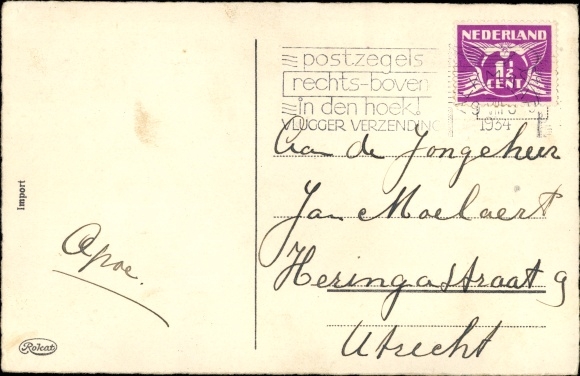 postzegels
rechts-boven
in den hoek!
VLUGGER VERZENDING
NEDERLAND
1½
CENT
1934
Aan de Jongeheer
Jan Moelaert
Heringastraat 9
Utrecht
Import
Apoe.
Rokat